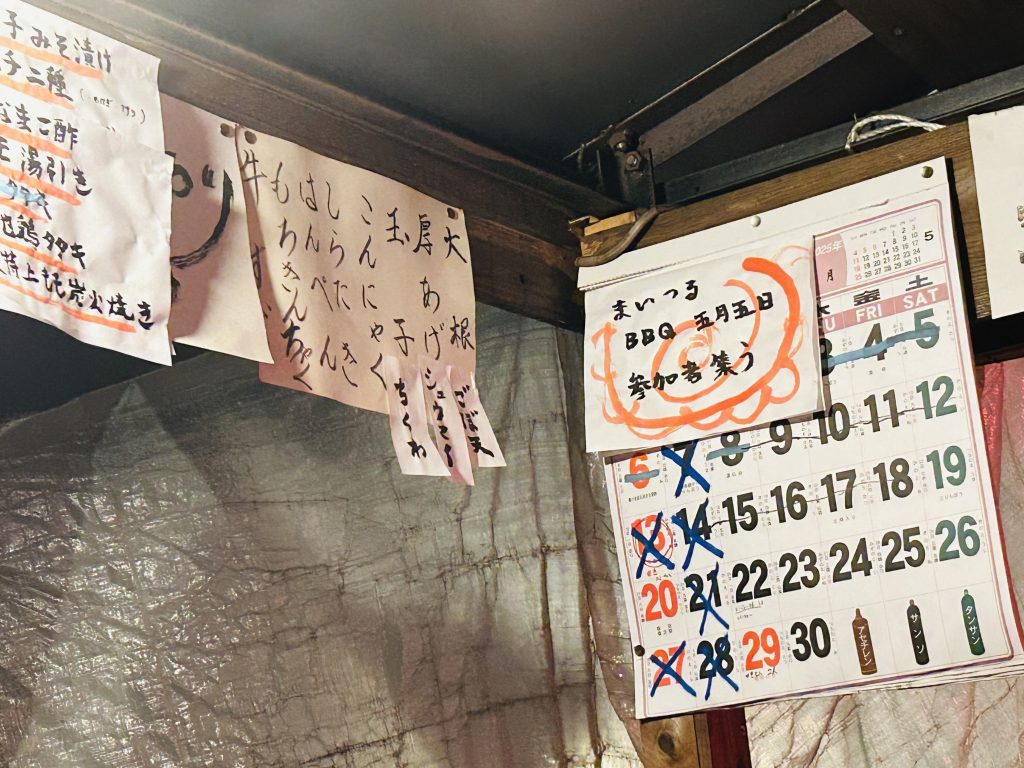 子みそ漬け
二種
酢
湯引き
タタキ
地鶏タタキ
特上もも炭火焼き
大根
厚あげ
玉子
こんにゃく
しらたき
はんぺん
もちきんちゃく
牛すじ
ごぼ天
シュウマイ
ちくわ
まいつる
BBQ 五月五日
参加者集う
2025年
5
月
金 土
FRI SAT
3 4 5
6 7 8 9 10 11 12
13 14 15 16 17 18 19
20 21 22 23 24 25 26
27 28 29 30
アセチレン
サンソ
タンサン